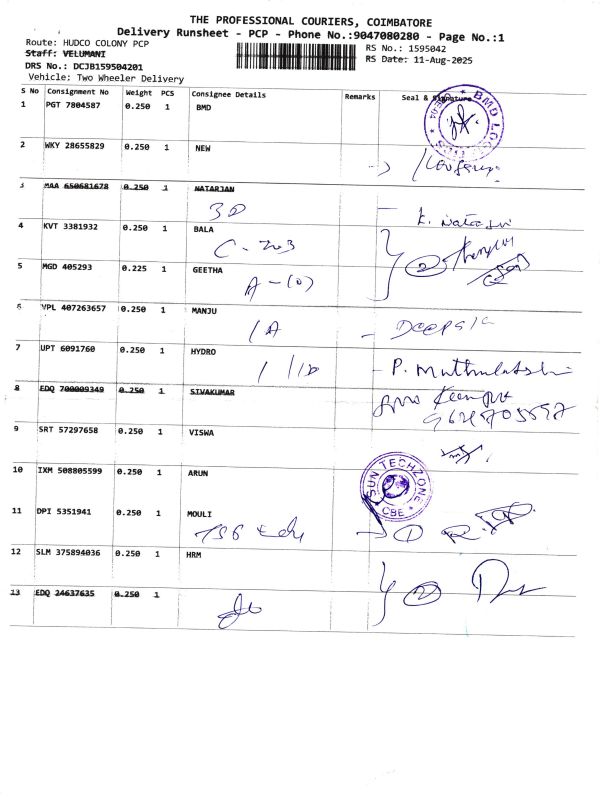 THE PROFESSIONAL COURIERS, COIMBATORE
Delivery Runsheet - PCP - Phone No.:9047080280 - Page No.:1
Route: HUDCO COLONY PCP
RS No.: 1595042
Staff: VELUMANI
RS Date: 11-Aug-2025
DRS No.: DCJB159504201
Vehicle: Two Wheeler Delivery
S No Consignment No Weight PCS Consignee Details Remarks Seal & Signature
1 PGT 7804587 0.250 1 BMD
2 WKY 28655829 0.250 1 NEW
3 MAA 650681678 0.250 1 NATARJAN
3D
4 KVT 3381932 0.250 1 BALA
C-203
5 MGD 405293 0.225 1 GEETHA
2
6 VPL 407263657 0.250 1 MANJU
1A
7 UPT 6091760 0.250 1 HYDRO
P. Muthulakshmi
8 EDQ 700009349 0.250 1 SIVAKUMAR
9 SRT 57297658 0.250 1 VISWA
10 IXM 508805599 0.250 1 ARUN
SUN TECHZONE
CBE
11 DPI 5351941 0.250 1 MOULI
12 SLM 375894036 0.250 1 HRM
2
13 EDQ 24637635 0.250 1